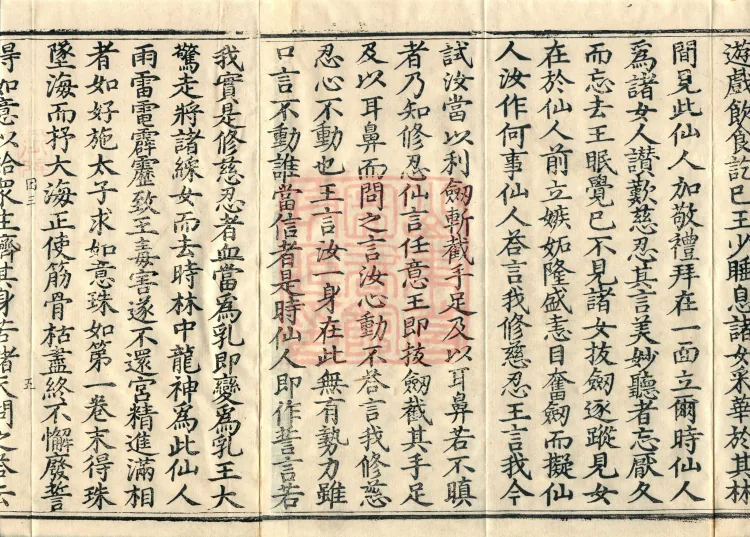 遊戲飲食訖巳王少睡息諸女采華於其林
間見此仙人加敬禮拜在一面立爾時仙人
爲諸女人讃歎慈忍其言美妙聽者忘厭久
而忘去王眠覺巳不見諸女拔劔逐蹤見女
在於仙人前立嫉妬隆盛恚目奮劔而擬仙
人汝作何事仙人荅言我修慈忍王言我今
試汝當以利劔斬截手足及以耳鼻若不瞋
者乃知修忍仙言任意王即拔劔截其手足
及以耳鼻而問之言汝心動不荅言我修慈
忍心不動也王言汝一身在此無有勢力雖
口言不動誰當信者是時仙人即作誓言若
我實是修慈忍者血當爲乳即變爲乳王大
驚走將諸綵女而去時林中龍神爲此仙人
雨雷電霹靂致王毒害遂不還宮精進滿相
者如好施太子求如意珠如第一卷末得珠
田三
五
墜海而抒大海正使筋骨枯盡終不懈廢誓
得如意以給衆生濟其身苦諸天問之荅云